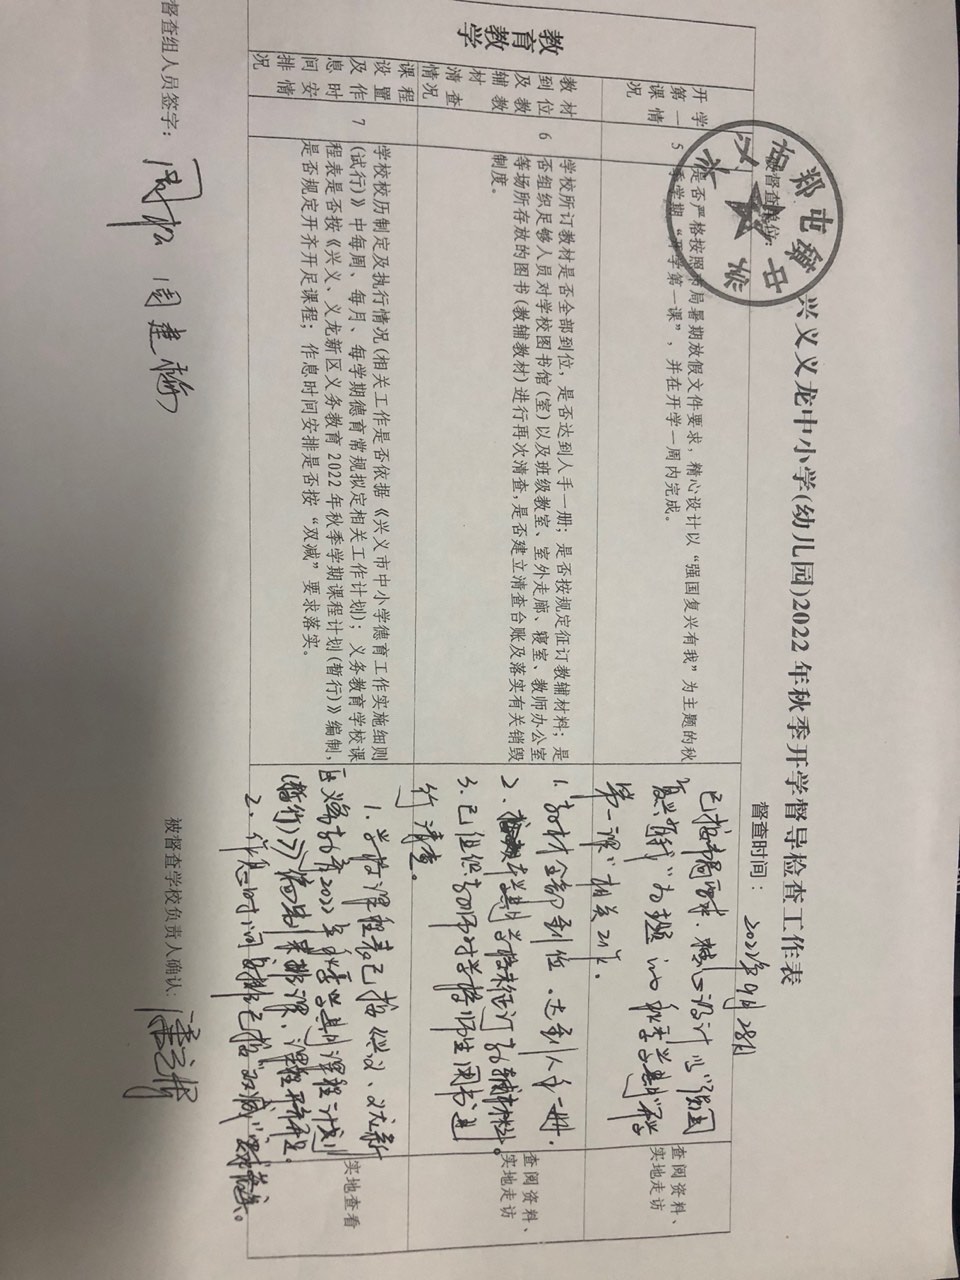 兴义义龙中小学(幼儿园)2022年秋季开学督导检查工作表
被督查单位:
督查时间: 2022年9月28日
教育教学
开学第一课情况
5
是否严格按照市局暑期放假文件要求,精心设计以“强国复兴有我”为主题的秋
季学期“开学第一课”,并在开学一周内完成。
已按市局要求,精心设计以“强国
复兴有我”为主题的秋季学期“开学
第一课”相关工作。
查阅资料、
实地走访
教材到位及教辅教材清查情况
6
学校所订教材是否全部到位,是否达到人手一册;是否按规定征订教辅材料;是
否组织足够人员对学校图书馆(室)以及班级教室、室外走廊、寝室、教师办公室
等场所存放的图书(教辅教材)进行再次清查,是否建立清查台账及落实有关销毁
制度。
1. 教材全部到位,达到人手一册,
2. 本学期学校未征订教辅材料。
3. 已组织教师对学校师生图书进
行清查。
查阅资料、
实地走访
课程设置及作息时间安排情况
7
学校校历制定及执行情况(相关工作是否依据《兴义市中小学德育工作实施细则
(试行)》中每周、每月、每学期德育常规拟定相关工作计划);义务教育学校课
程表是否按《兴义、义龙新区义务教育2022年秋季学期课程计划(暂行)》编制,
是否规定开齐开足课程;作息时间安排是否按“双减”要求落实。
1. 学校课程表已按《兴义、义龙新
区义务教育2022年秋季学期课程计划
(暂行)》编制来排课,课程开齐开足。
2. 作息时间安排已按“双减”要求落实。
实地查看
督查组人员签字: 周松 周建梅
被督查学校负责人确认: